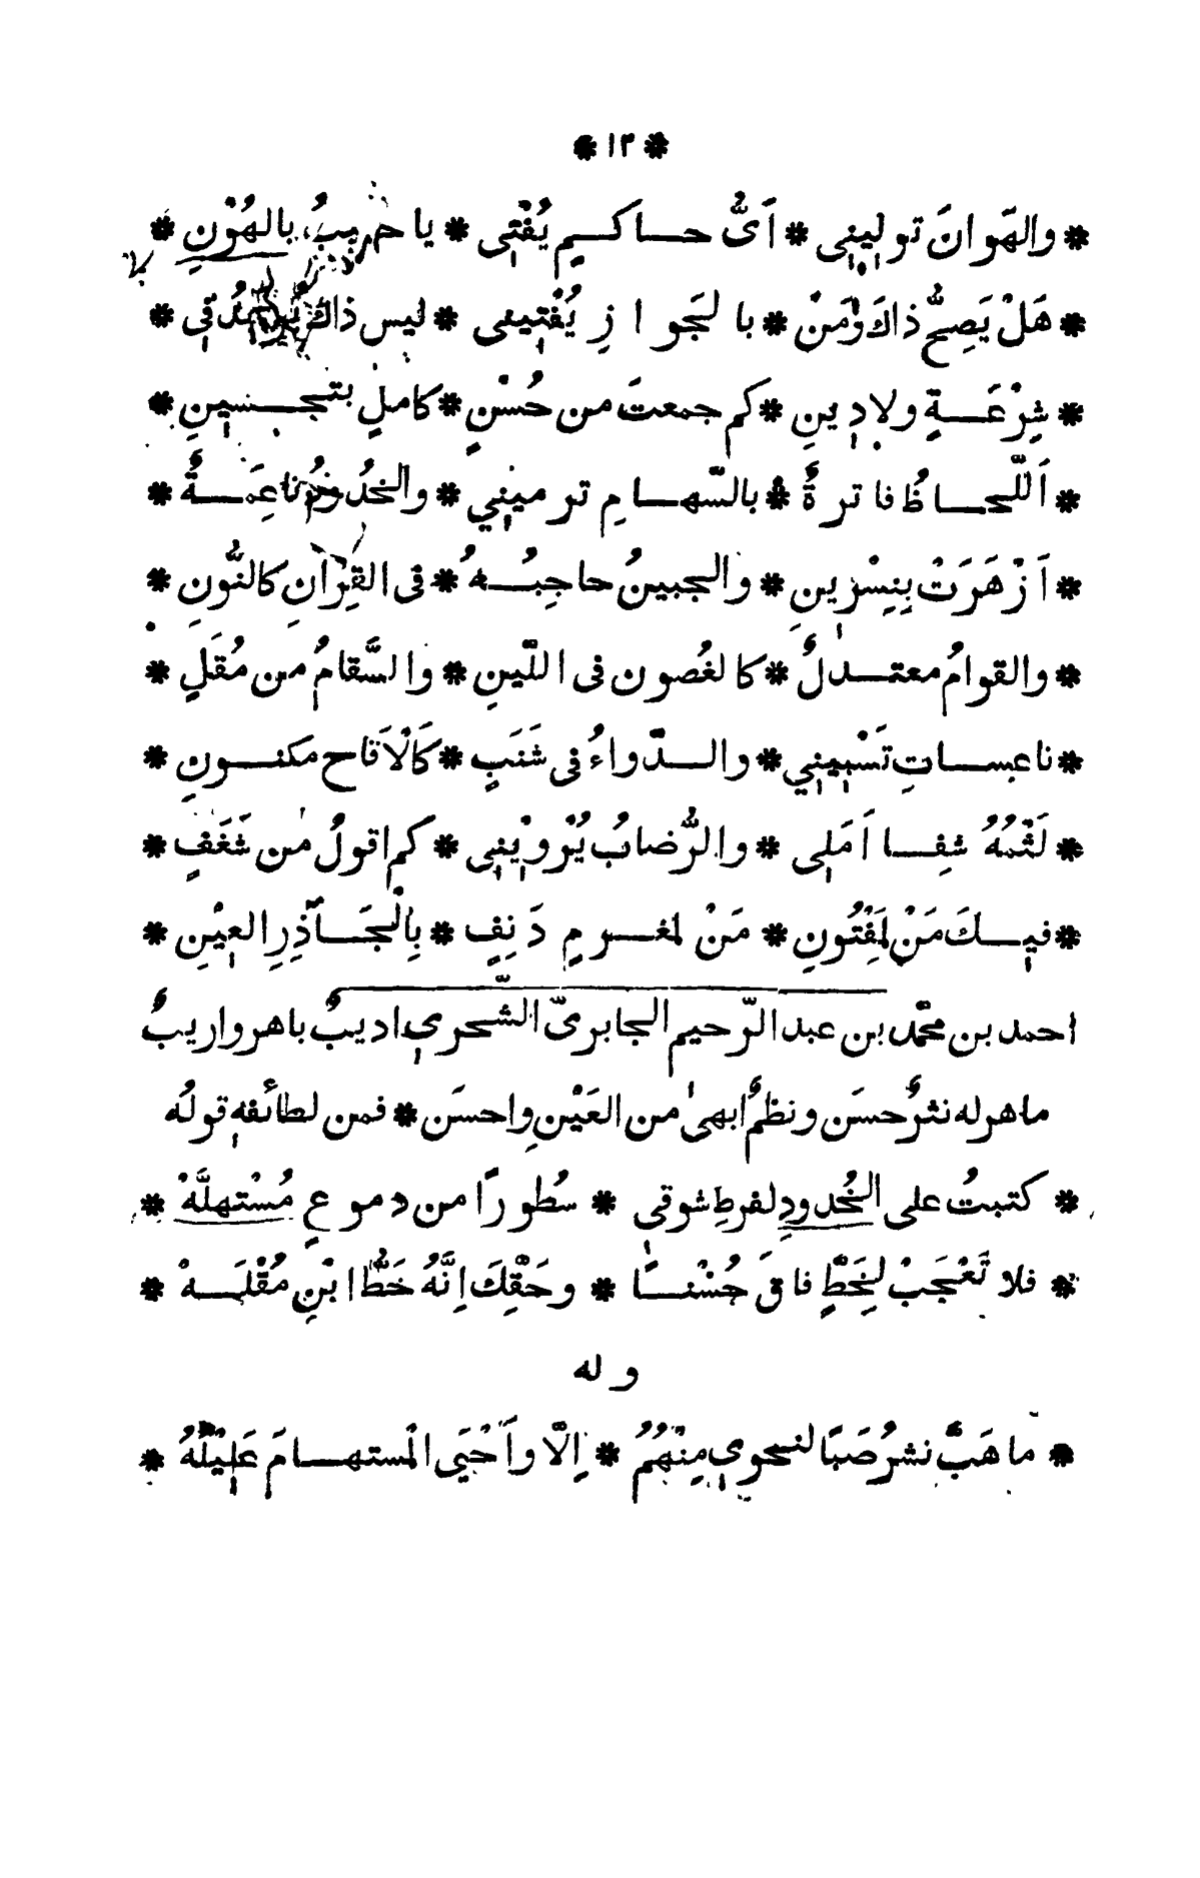 * ١٣ *
* والهَوانَ توليني * اَىُّ حاكمٍ يُفْتى * يا حبيبُ بالهُوْنِ *
* هَلْ يَصِحُّ ذاكَ وَمَنْ * بالجَوازِ يُفْتيني * ليس ذاك فى *
* شِرْعَةٍ ولا دِينِ * كم جمعتَ من حُسْنٍ * كاملٍ بتجنسينِ *
* اَللّحاظُ فاترةٌ * بالسّهامِ ترميني * والخدُودُ ناعِمَةٌ *
* اَزْهَرَتْ بِنِسْرينِ * والجبينُ حاجِبُهُ * فى القِرانِ كالنُّونِ *
* والقوامُ معتدلٌ * كالغُصون فى اللّينِ * والسَّقامُ من مُقَلٍ *
* ناعساتِ تَسْبيني * والدّواءُ فى شَنَبٍ * كَالْاَقاح مكنونِ *
* لَثْمُهُ شِفا اَمَلى * والرُّضابُ يُرْويْنى * كم اقولُ من شَغَفٍ *
* فيكَ مَنْ لِمَفْتُونِ * مَنْ لمغرمٍ دَنِفٍ * بِالْجَآذِرِ العِيْنِ *
احمد بن محمّد بن عبد الرّحيم الجابرىّ الشّحرى اديبٌ باهر واريبٌ
ماهر له نثرٌ حسَن ونظمٌ ابهىٰ من العَيْنِ واحسَن * فمن لطائفه قولُه
* كتبتُ على الخُدودِ لفرطِ شوقى * سُطورًا من دموعٍ مُسْتهلَّهْ *
* فلا تَعْجَبْ لِخَطٍّ فاقَ حُسْنًا * وحَقِّكَ اِنَّهُ خَطُّ ابْنِ مُقْلَهْ *
وله
* ما هَبَّ نشرُ صَبًا لنحوى مِنْهُمُ * اِلّا واَحْيَى المُستهامَ عَلِيْلُهُ *